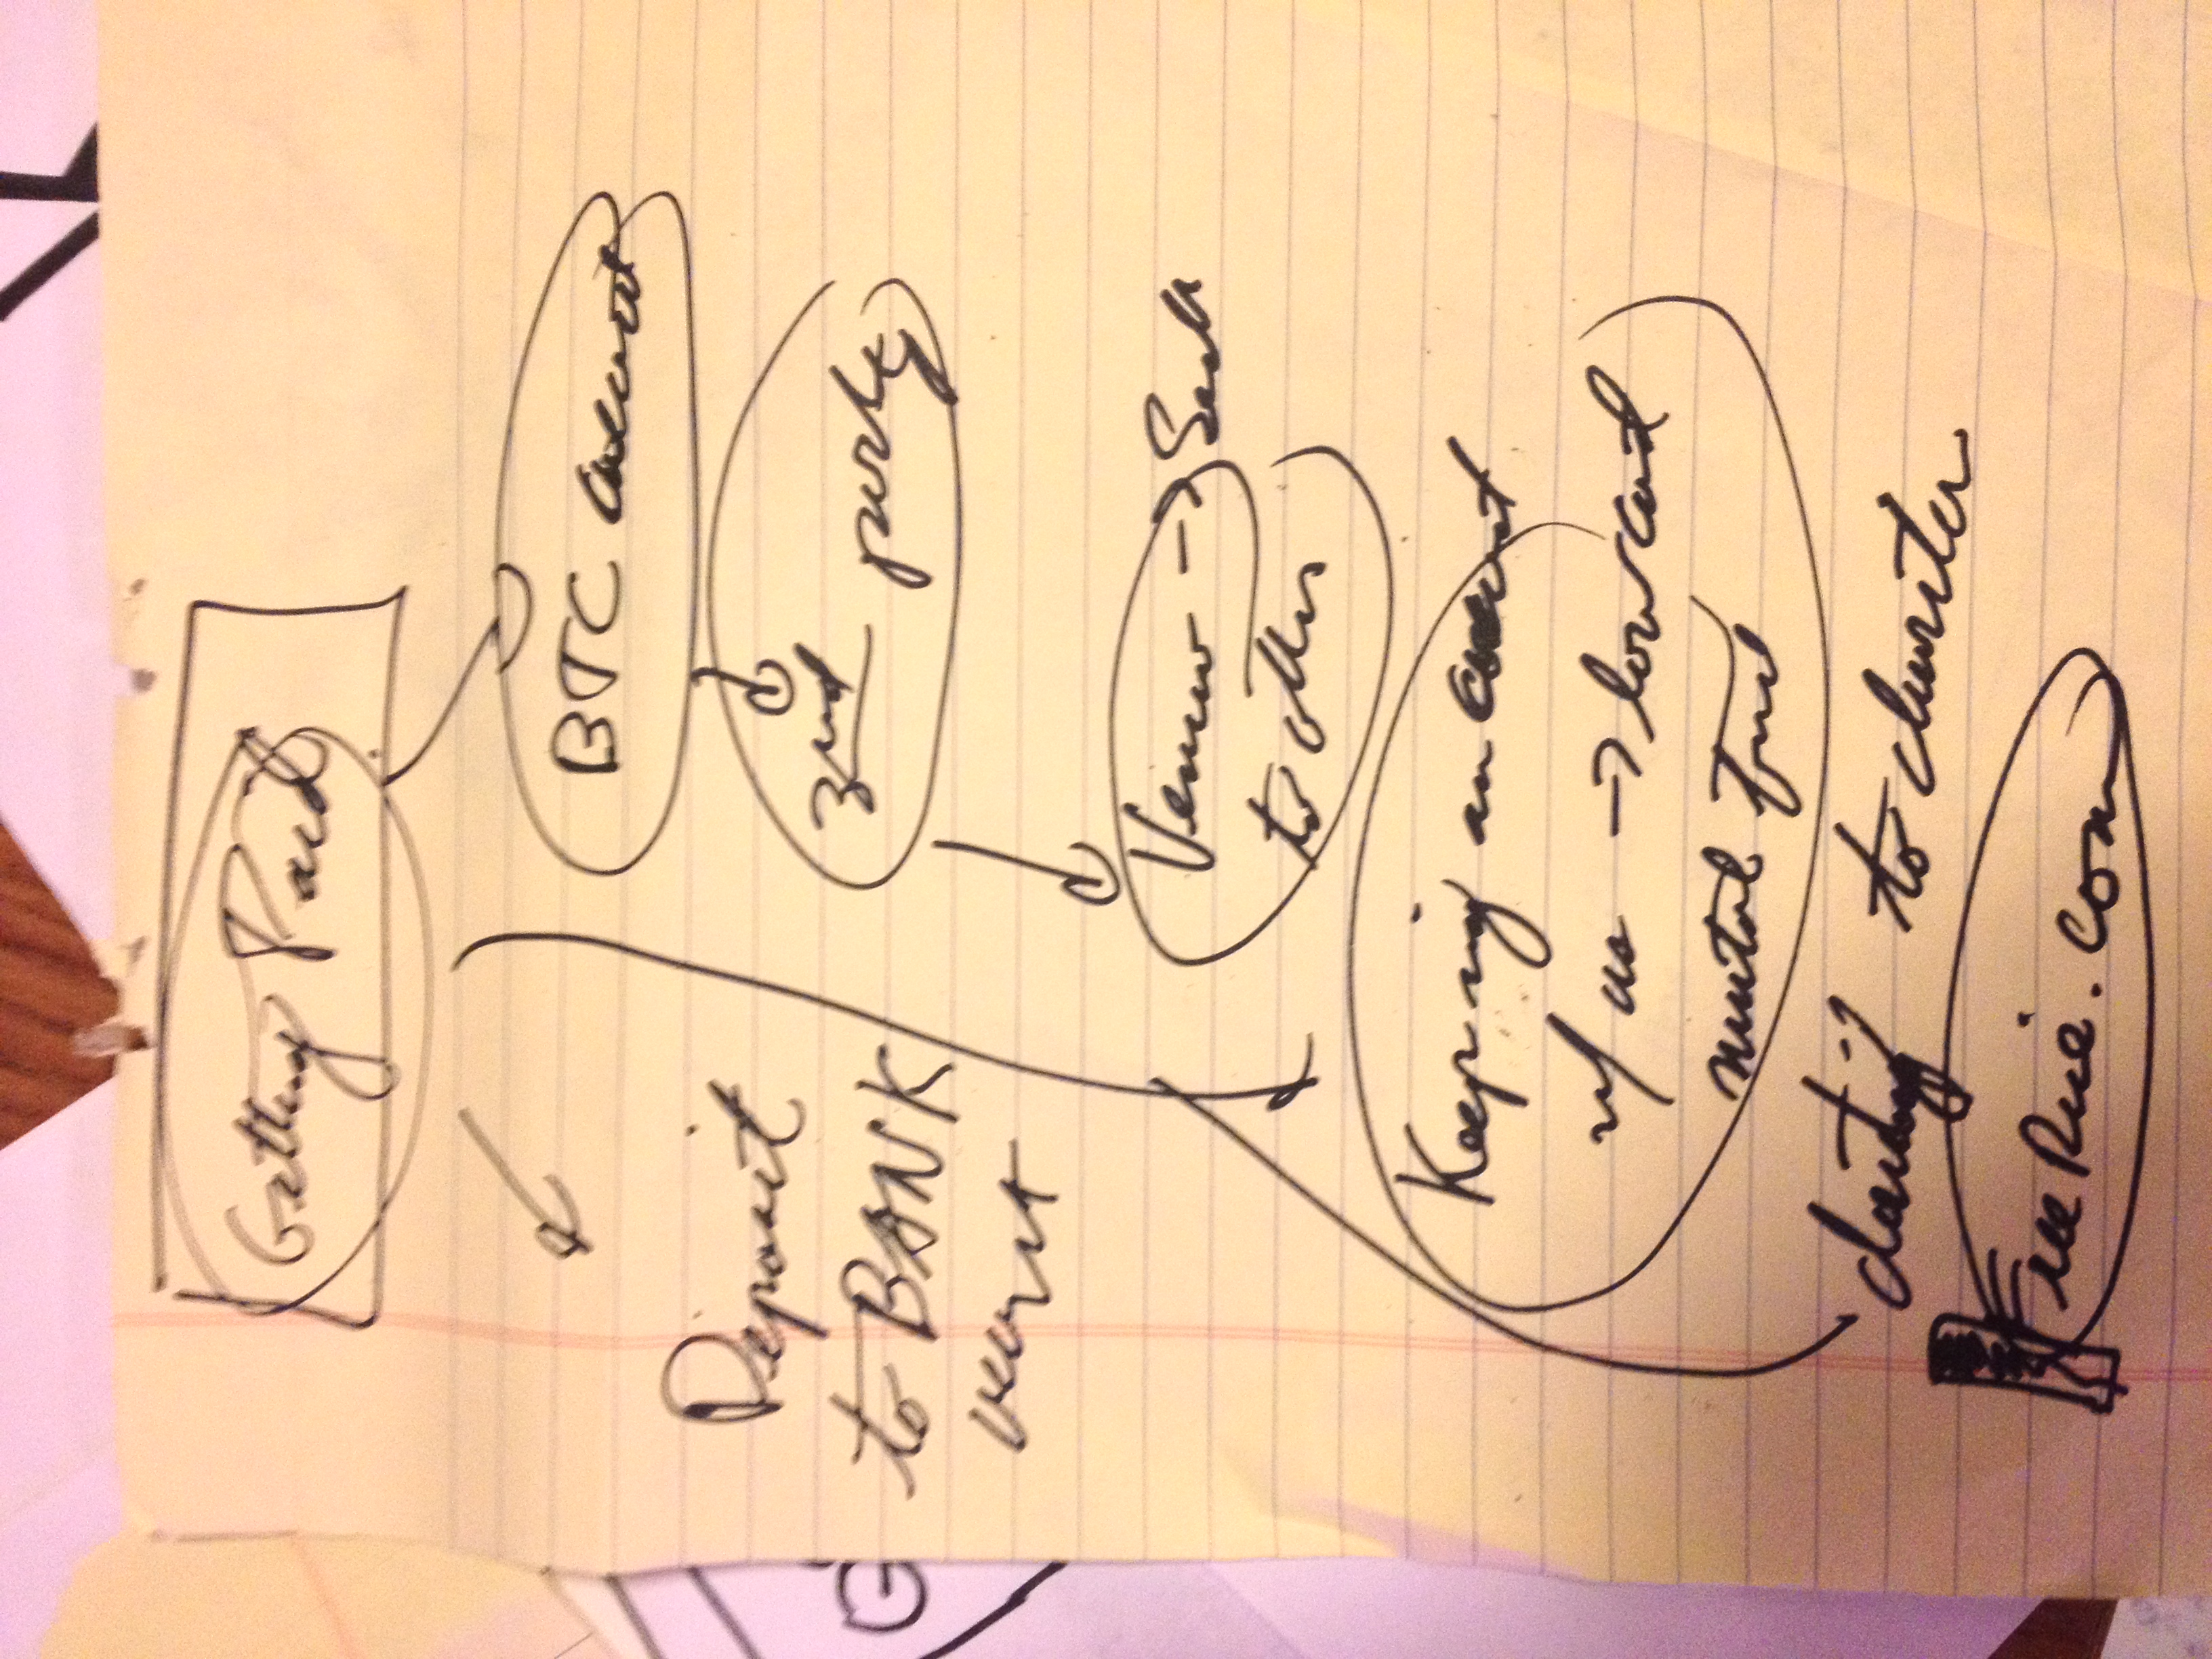 Getting Paid
BTC account
Deposit
to BANK
2nd party
Venmo →
to others
Keeping an account
w/ us → low cost
mutual fund
to charities
FreeRice.com
G